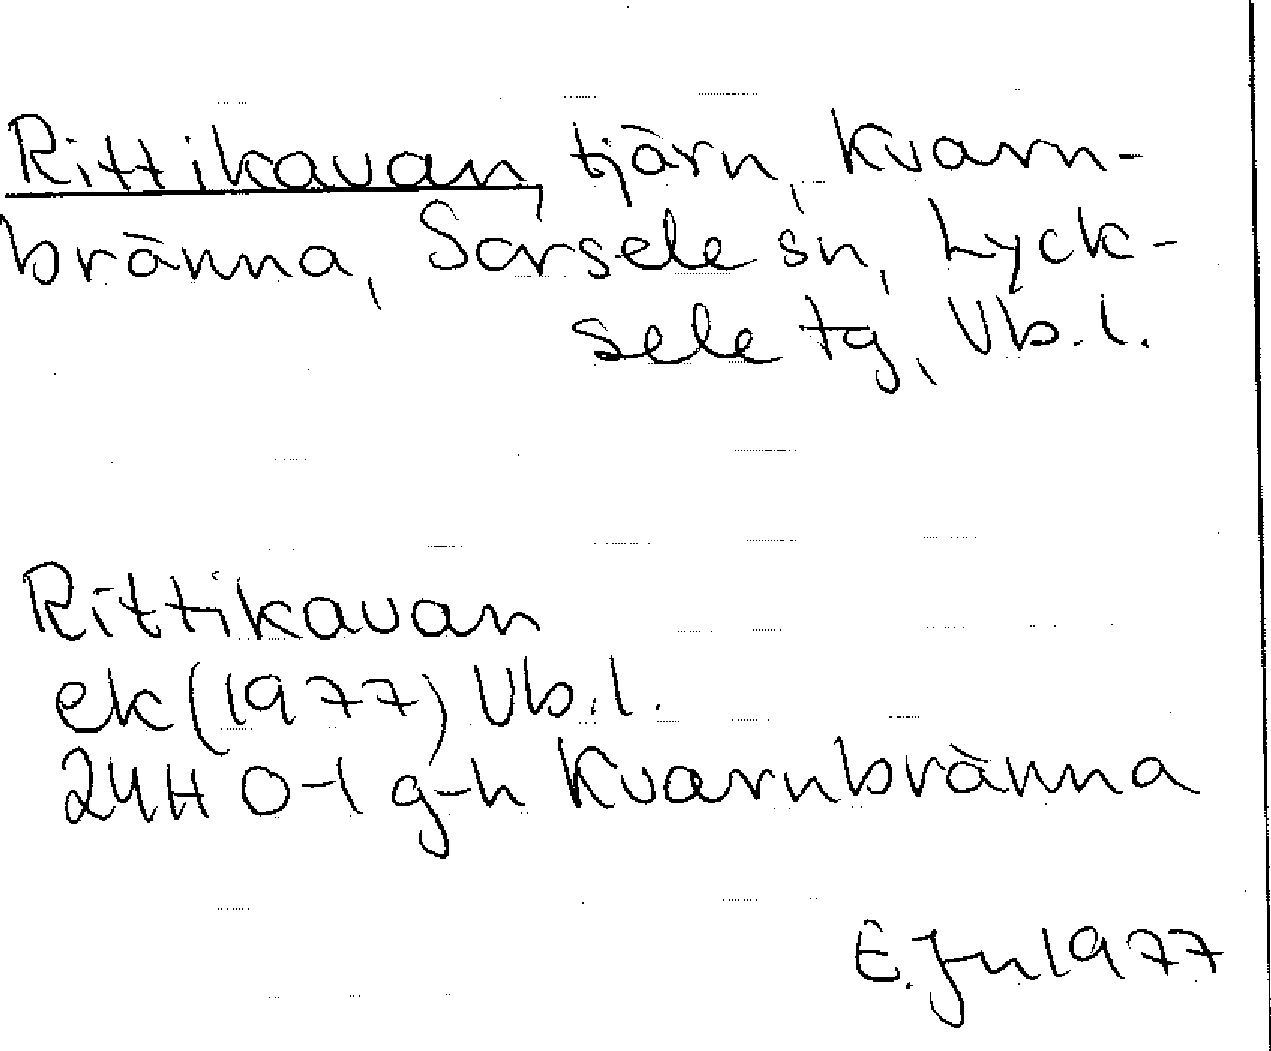 Rittikavan, tjärn, Kvarn-
bränna, Sorsele sn, Lyck-
sele tg, Vb. l.
Rittikavan
ek (1977) Vb. l.
24H 0-1 g-h Kvarnbränna
E. Jn 1977